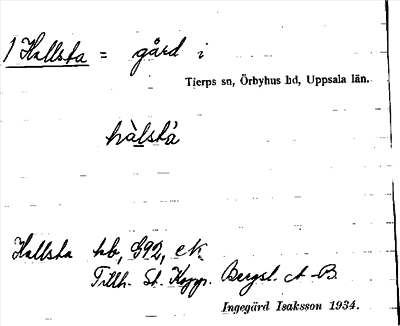 1 Hallsta = gård i
Tierps sn, Örbyhus hd, Uppsala län.
hàlstá
Hallsta hb, G92, ek.
Tillh. St. Kopp. Bergsl. A-B.
Ingegärd Isaksson 1934.